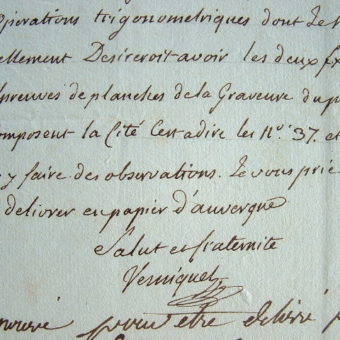 operations trigonometriques dont le
ellement Desireroit avoir les deux
épreuves de planches de la Graveure du
omposent la Cité Cestadire les Nos. 37. et
y faire des observations. Je vous prie
délivrer en papier d'auvergne
Salut et fraternité
Verniquet
pour être délivré